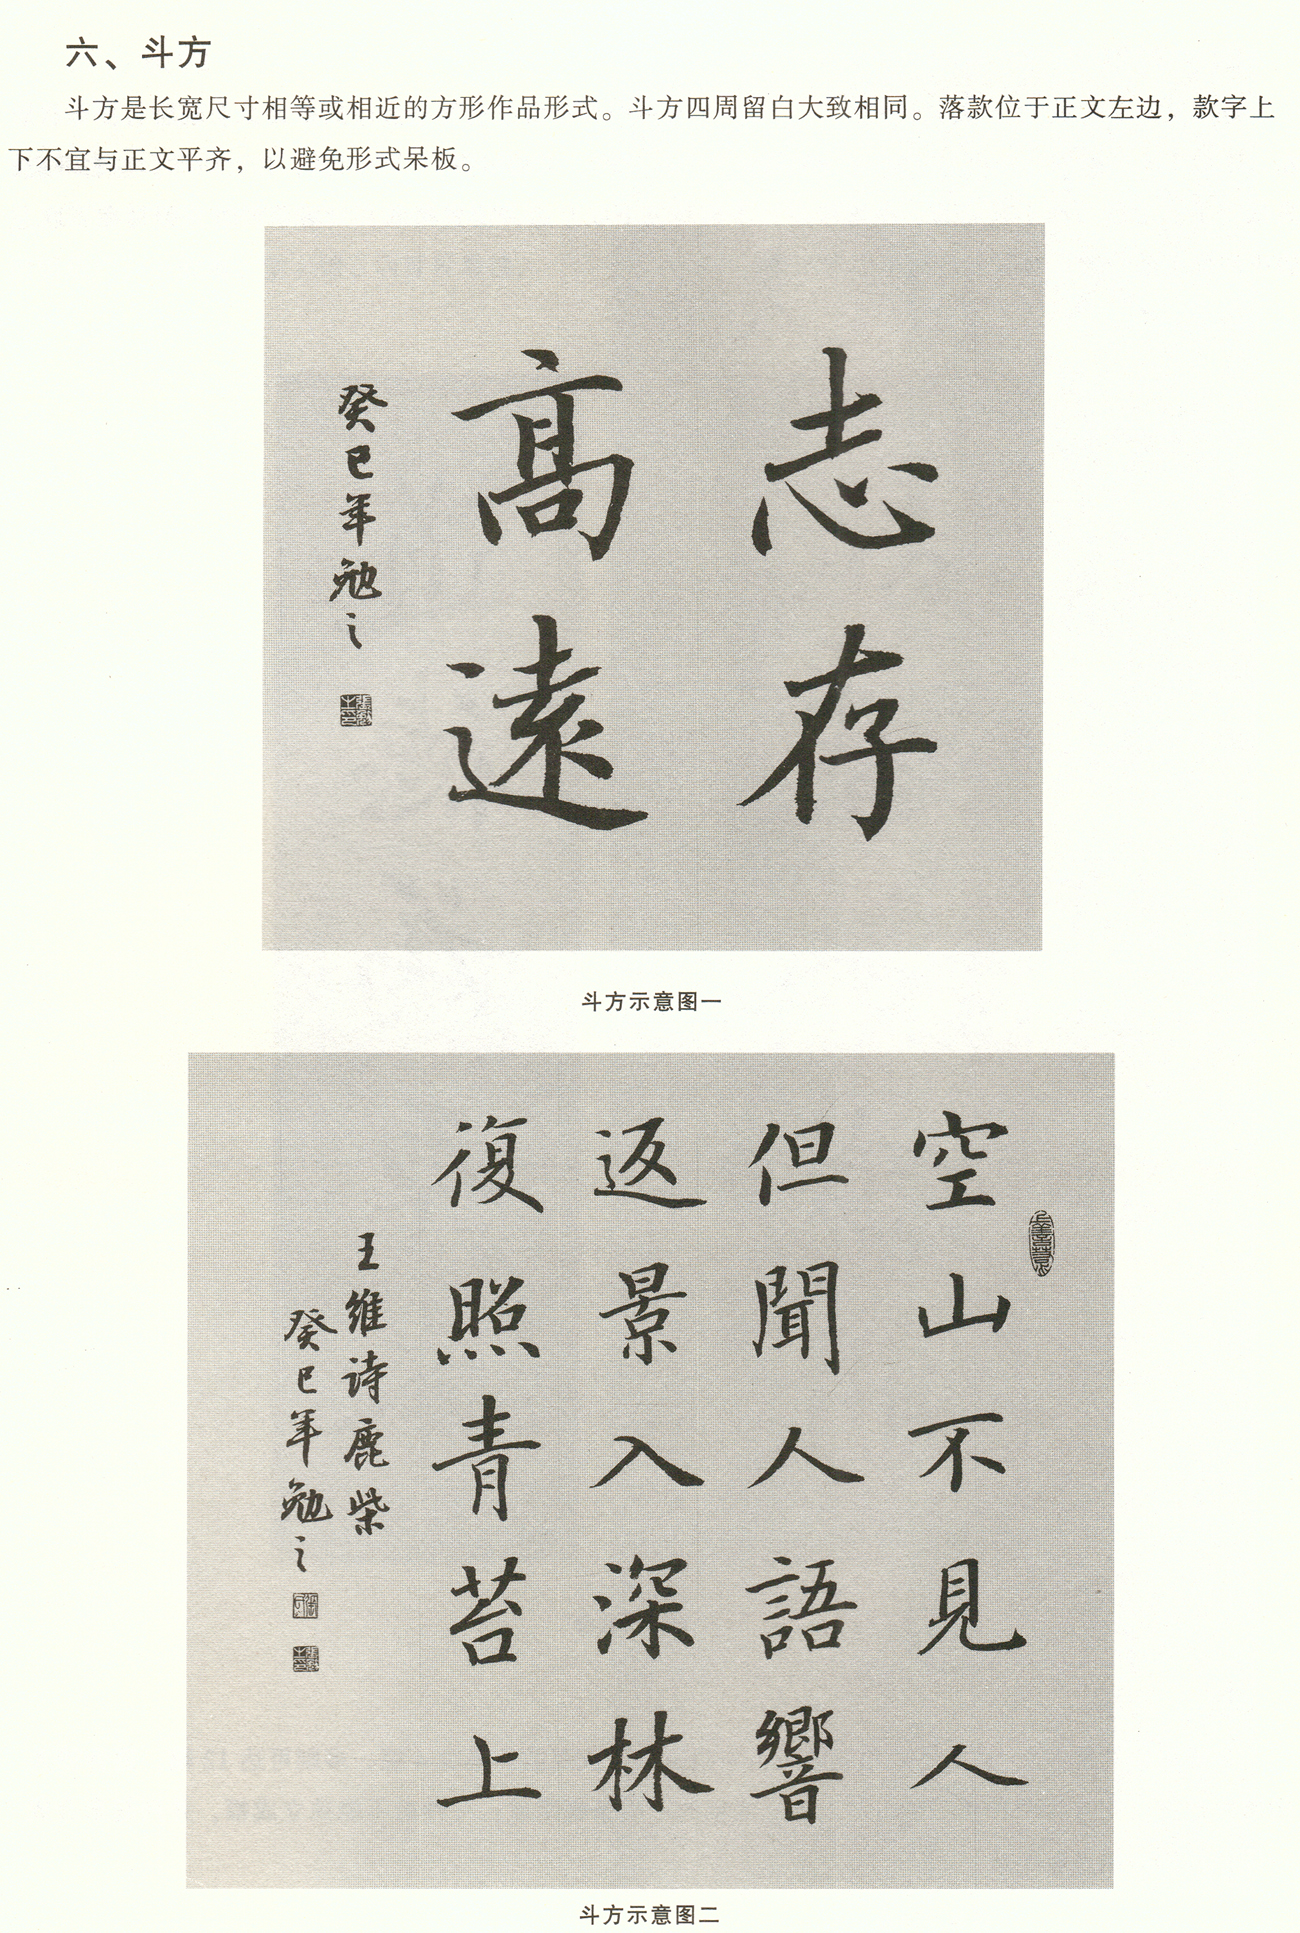 六、斗方
斗方是长宽尺寸相等或相近的方形作品形式。斗方四周留白大致相同。落款位于正文左边，款字上
下不宜与正文平齐，以避免形式呆板。
志存
高遠
癸巳年勉之
斗方示意图一
空山不見人
但聞人語響
返景入深林
復照青苔上
王维诗鹿柴
癸巳年勉之
斗方示意图二